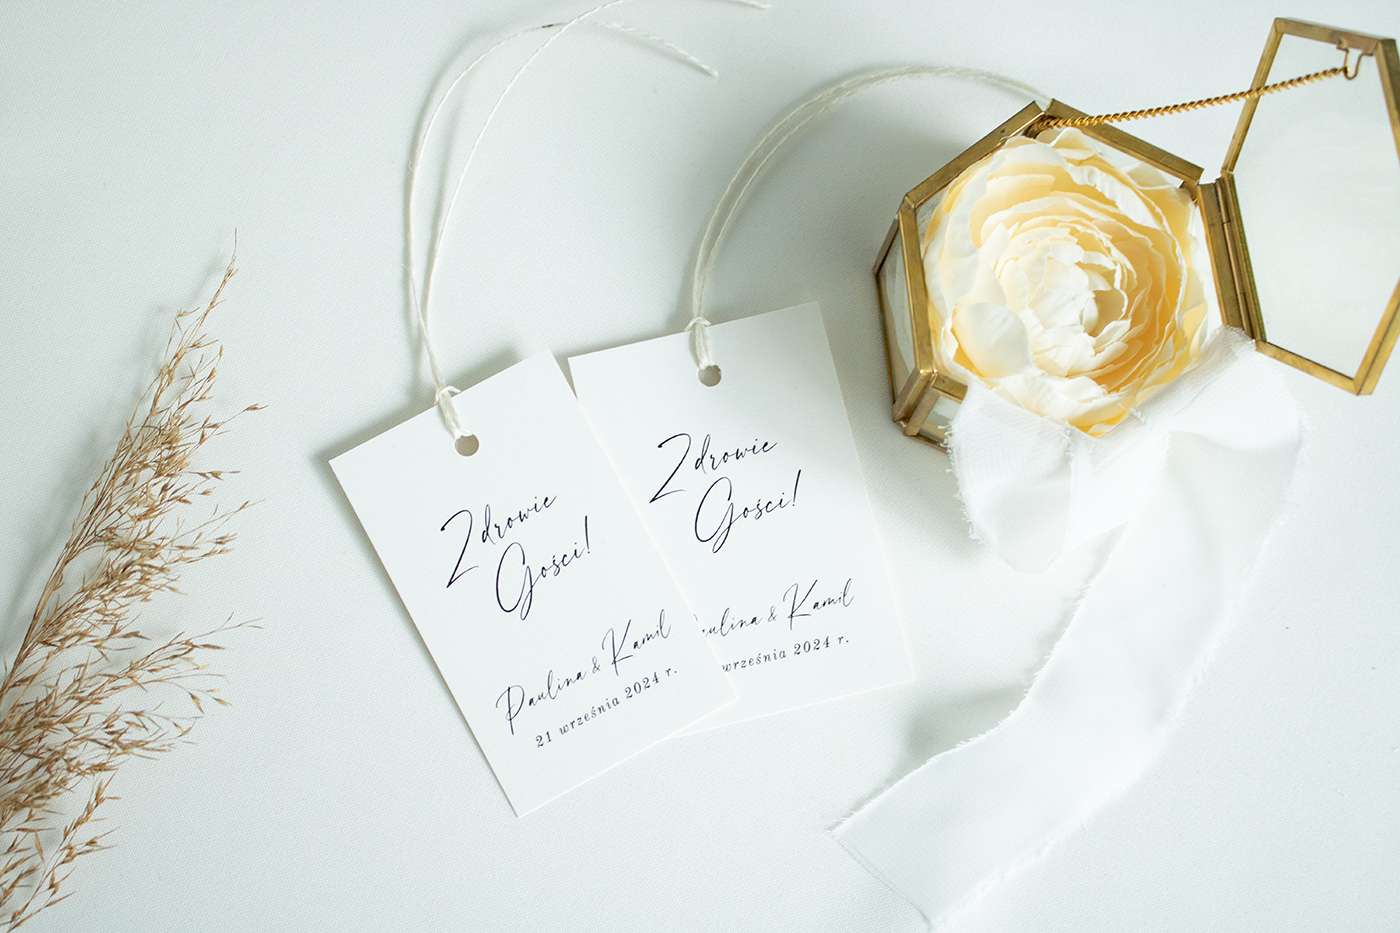 Zdrowie
Gości!
Paulina & Kamil
21 września 2024 r.
Zdrowie
Gości!
aulina & Kamil
września 2024 r.